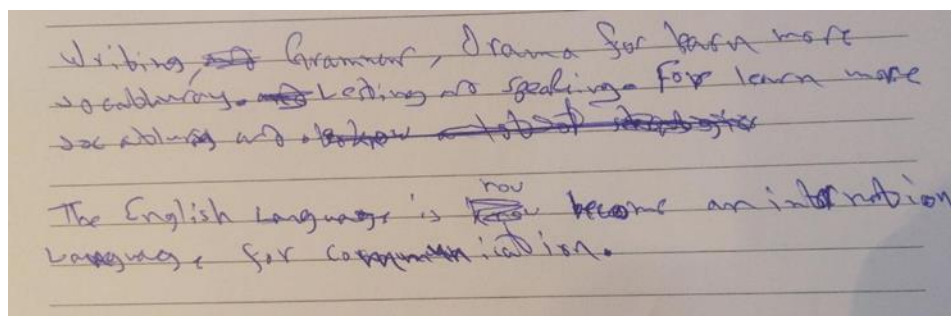 Writing, Grammer, drama for learn more
vocabluray. Leding and speaking. For learn more
vocablurg and
The English Language is nou become an internation
Language for communication.